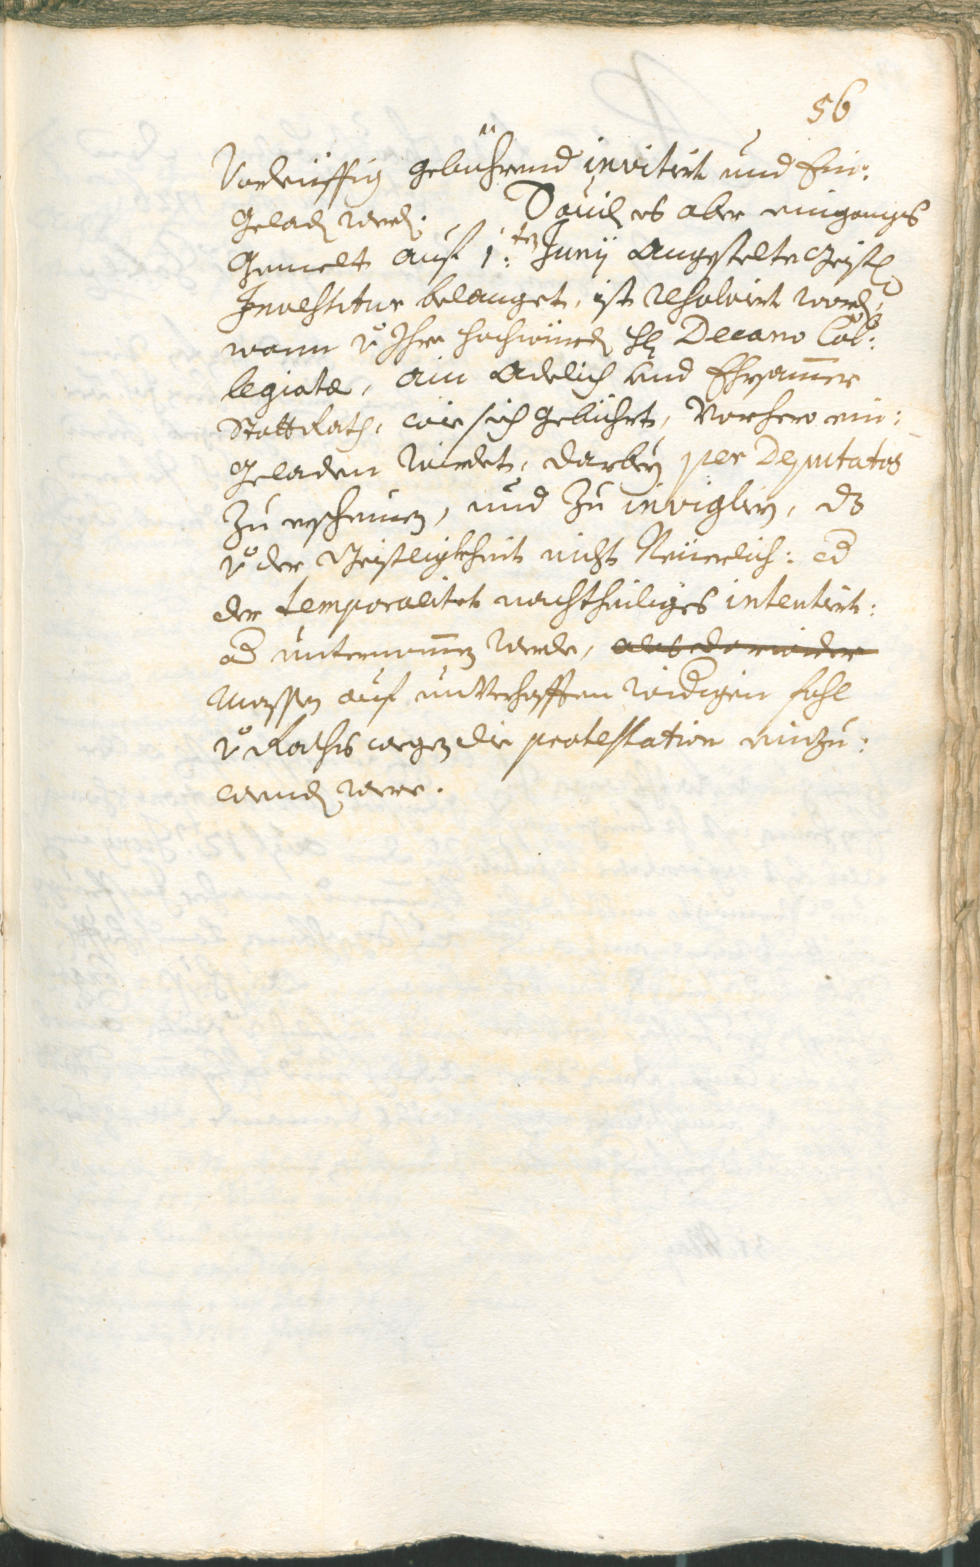 56
Vorleüffig gebührend invitirt und Ein:
geladen werden. Souil es aber eingangs
Gemelt auf 1:ten Junii Angestelte Geistl
Investitur belanget, ist resolvirt worden,
wann v Ihro hochwürden Hl Decano Col:
legiatæ, ain Adelich und Ehrsammer
StattRath, wie sich gebührt, Vorhero ein:
geladen wirdet, darbey per Deputatos
zu erscheinen, und zu invigliren, dz
v der Geistligkheit nicht Neüerlich: od
der temporalitet nachtheiliges intentirt:
od unternommen werde, als da wider
Massen auf unVerhofften widrigen fahl
v Raths wegen die protestation einzu:
wenden were.